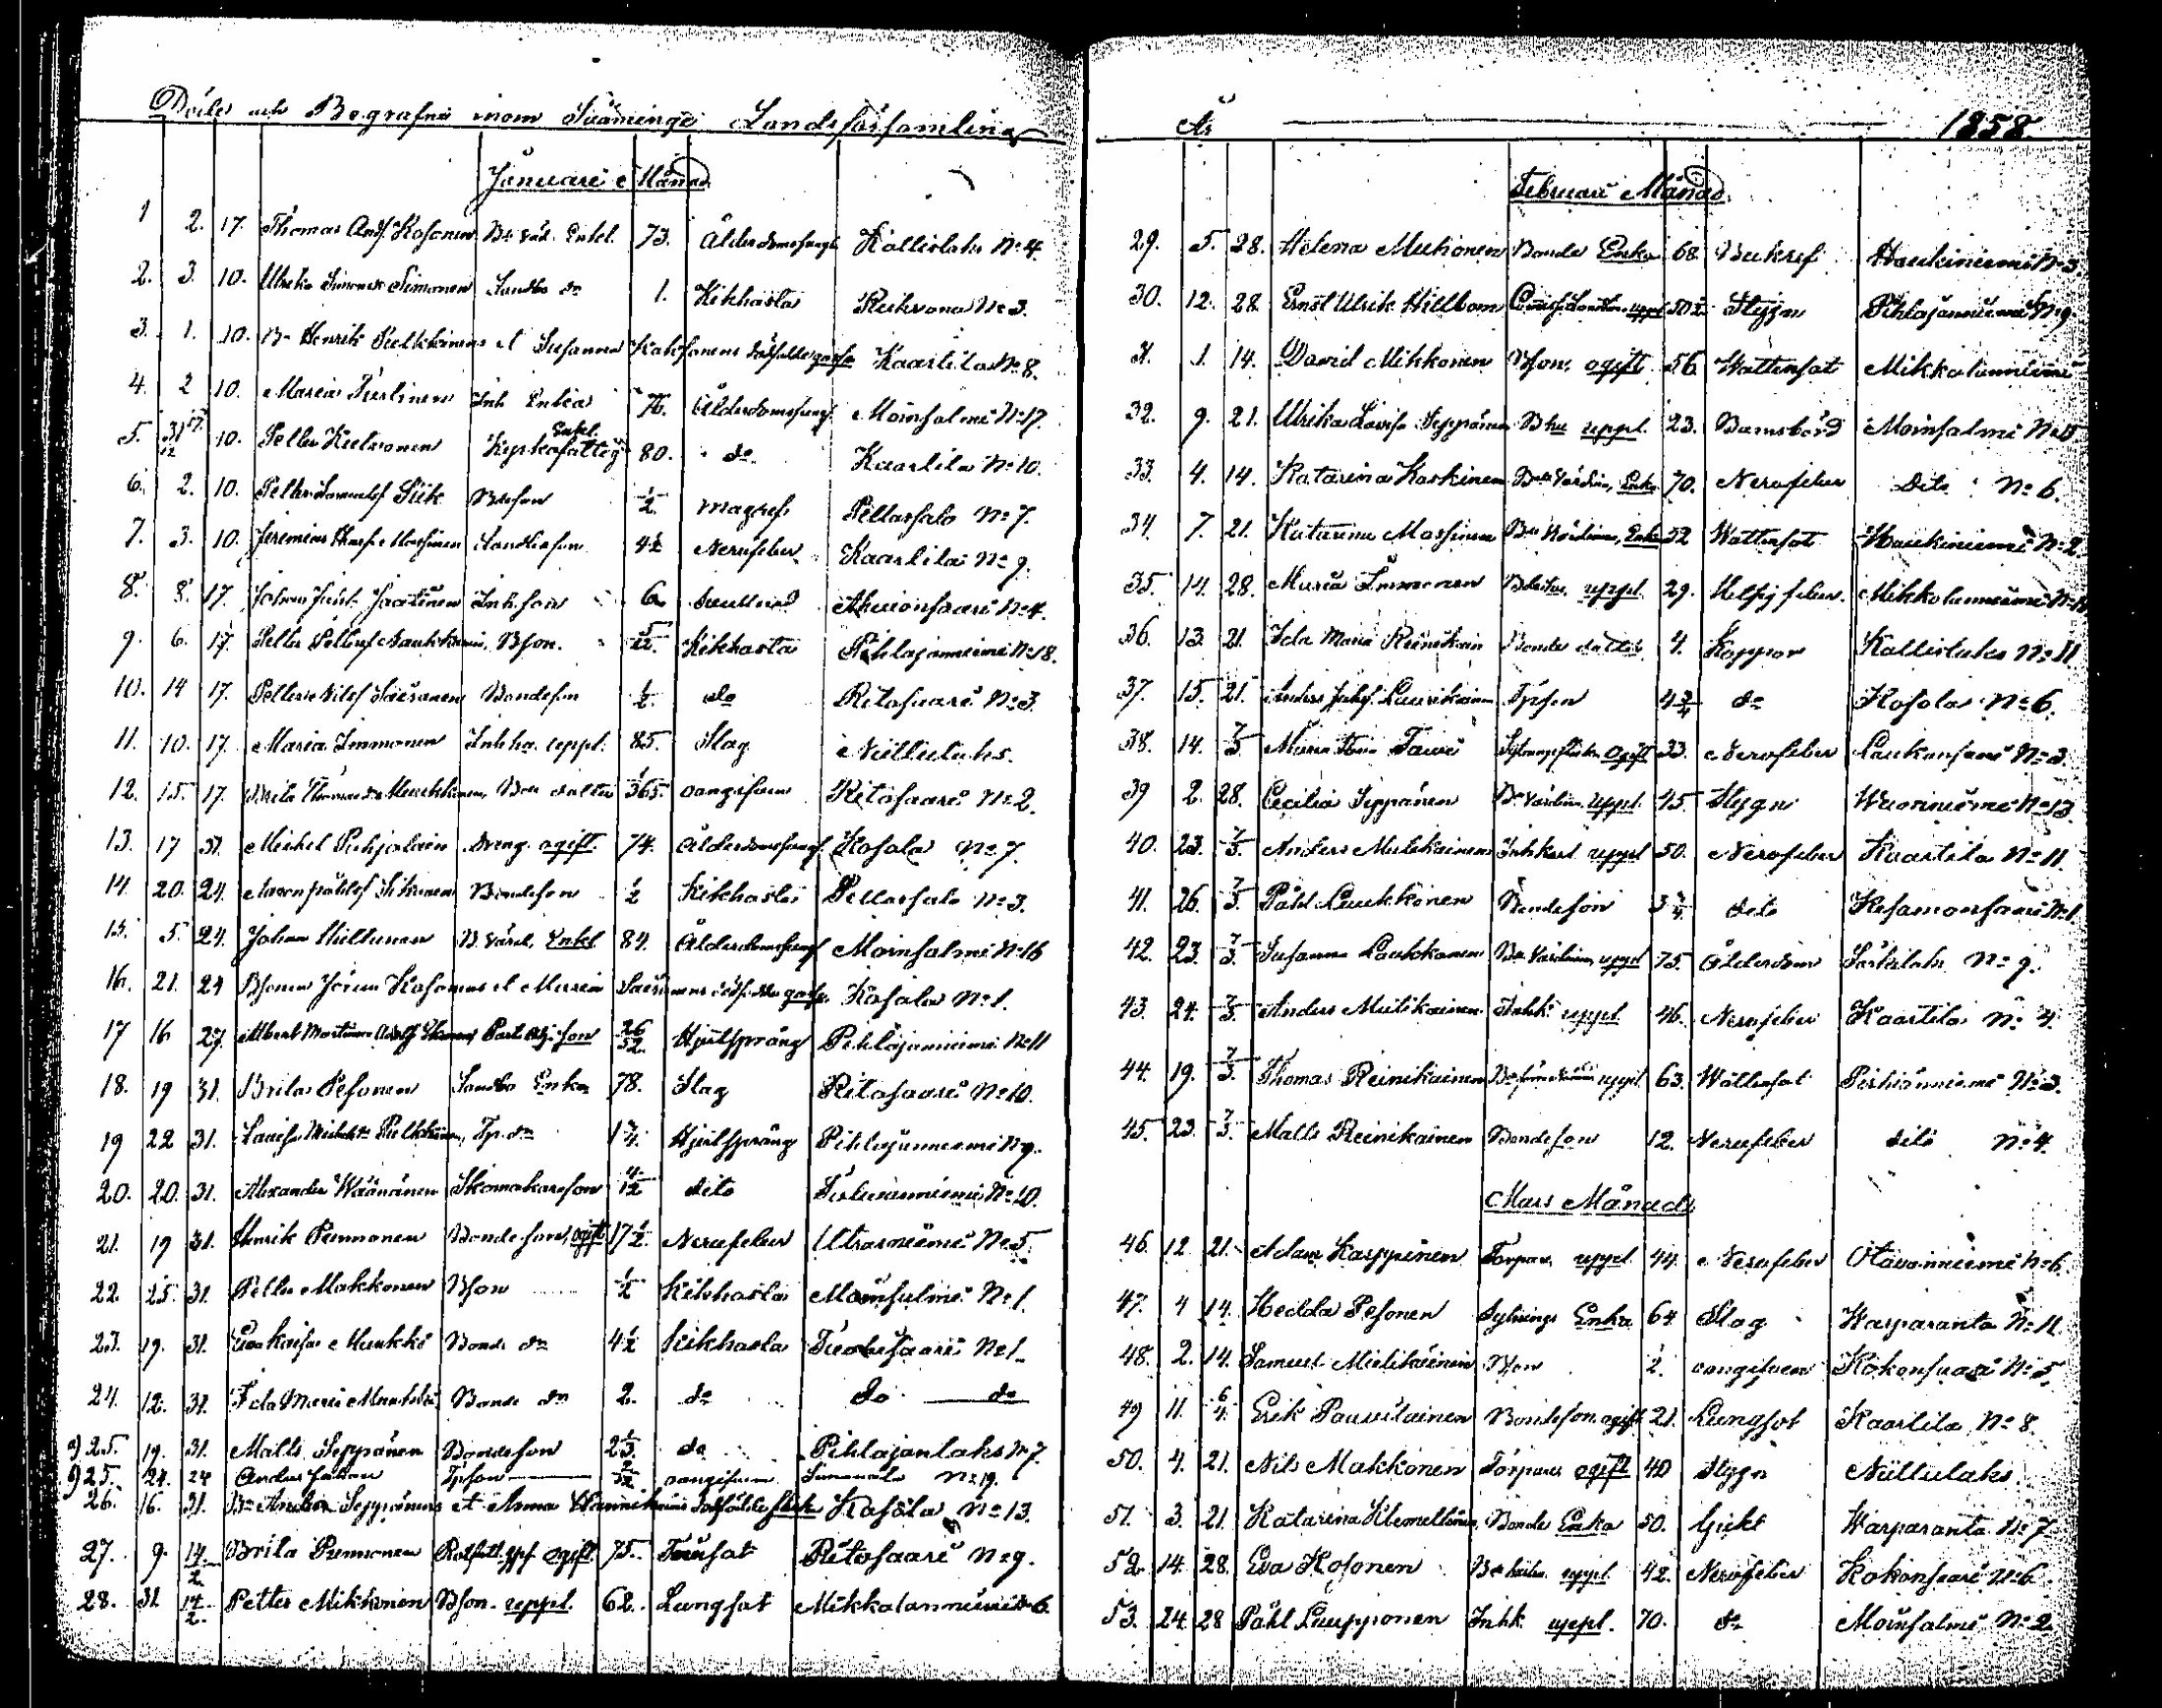 Döde och Begrafne inom Sääminge Landsförsamling
Januari Månad
1 2. 17. Thomas And. Kosonen Bd. värd. Enkl. 73. Ålderdomssvagh. Kallislaks No 4.
2. 3. 10. Ulrika Simonsdr Simonen Landbo dr 1. Kikhosta Reikvona No 3.
3. 1. 10. Bn Henrik Pulkkinens et Susanna dödfödde gosse Kaartila No 8.
4. 2 10. Maria Turtinen Inh. Enka 76. Ålderdomssvagh. Moinsalmi No 17.
5. 31/12 17. 10. Petter Kulvonen Enkl. Kyrkofattig 80. do Kaartila No 10.
6. 2. 10. Petter Samuelss. Siik Bdeson 1/2 magref. Pellossalo No 7.
7. 3. 10. Jeremias Landboson 4 1/2 Nervfeber Kaartila No 9.
8. 8. 17. Johan Jaatinen Inh. son 6. Ahvionsaari No 4.
9. 6. 17. Petter Bson. 5/12. Kikhosta Pihlajaniemi No 18.
10. 14 17. Petter Nilss. Bondeson 1/2. do Ritosaari No 3.
11. 10. 17. Maria Immonen Inhha. uppl. 85. Slag Niittulaks.
12. 15. 17. Brita Thomasdr Bde dotter 1/365. oangifven Ritosaari No 2.
13. 17 31. Michel Puhjolain Dreng. ogift. 74. Ålderdomssvagh. Kosola No 7.
14. 20. 24. Bondeson 1/2 Kikhosta Pellossalo No 3.
15. 5. 24. Johan Hiltunen B. värd. Enkl 84. Ålderdomssvagh Moinsalmi No 16
16. 21. 24 Bonen Jöran Kosonens et Maria dödfödde gosse Kosola No 1.
17 16 27. Albert Mortimer Adolf son 26/52. Hjertsprång Pihlajaniemi No 11
18. 19 31. Brita Pesonen Landbo Enka 78. Slag Ritosaari No 10.
19 22 31. Lovisa Michelsdr Pulkkinen, Tp. dr 1 3/4. Hjertsprång Pihlajaniemi N 9.
20. 20. 31. Alexander Väänänen Skomakareson 4/12 dito No 10.
21. 19 31. Henrik Punnonen Bondeson, ogift 17 1/2. Nervfeber Utrasniemi No 5.
22. 25. 31. Petter Makkonen Bson 1/2 Kikhosta Moinsalmi No 1.
23. 19. 31. Eva Lovisa Munkki Bonde dr 4 1/2 Kikhosta Tuohisaari No 1.
24. 12. 31. Ida Maria Bonde dr 2. do do do
a) 25. 19. 31. Matts Seppänen Bondeson 2 1/3. do Pihlajanlaks N 7.
b) 25. 24. 24 Anders Tpson 2/52 oangifven No 19.
26. 16. 31. Bn Anders Seppänens et Anna dödfödde flicka Kosola No 13.
27. 9. 14/2. Brita Punnonen ogift 75. Ritosaari No 9.
28. 31. 14/2. Petter Mikkonen Bson. uppl. 62. Lungsot Mikkolanniemi No 6.
År 1858.
Februari Månad.
29. 5. 28. Helena Muhonen Bonde Enka 68. Bukref Haukiniemi No 3.
30. 12. 28. Ernst Ulrik Hillbom uppl 50 1/2. Stygn Pihlajaniemi No 9.
31. 1 14. David Mikkonen Bson. ogift. 56 Wattensot Mikkolanniemi
32. 9. 21. Ulrika Lovisa Seppänen Bhu uppl. 23. Barnsbörd Moinsalmi No 15
33. 4. 14. Katarina Koskinen Bde Värdin, Enka 70. Nervfeber Dito No 6.
34. 7. 21. Katarina Moisinen Bde Värdinna, Enka 52 Wattensot Haukiniemi No 2.
35. 14. 28. Maria Immonen uppl. 29. Mikkolanniemi
36. 13. 21. Ida Maria Reinikain Bonde dotter 4. Koppor Kallislaks No 11
37. 15. 21. Anders Laurikain Tpson 4 3/4 do Kosola No 6.
38. 14. 7/3. Maria ogift 33. Nervfeber Laukansaari No 3.
39 2. 28. Cecilia Seppänen Bde Värdin. uppl. 45. Stygn Wuoriniemi No 13.
40. 23. 7/3. Anders Mutikainen Inhkarl uppl 50. Nervfeber Kaartila No 11.
41. 26. 7/3. Påhl Luukkonen Bondeson 3 3/4. dito Kesamonsaari No 1.
42. 23. 7/3. Susanna Laukkanen Bde Värdinna uppl 75. Ålderdom Särkilaks No 9.
43. 24. 7/3. Anders Mutikainen Inhk. uppl 46. Nervfeber Kaartila No 4.
44. 19. 7/3. Thomas Reinikainen uppl. 63. Wattensot Peskianniemi No 3.
45. 23. 7/3. Matts Reinikainen Bondeson 12. Nervfeber dito No 4.
Mars Månad
46. 12 21. Adam Karppinen Torpare uppl 44. Nervfeber Otavanniemi No 6.
47. 4 14. Hedda Pesonen Sytnings Enka 64 Slag Warparanta No 11.
48. 2. 14. Samuel Mielikäinen Bson 1/2. oangifven Kokonsaari No 5.
49 11. 6/4. Erik Pauvilainen Bondeson ogift 21. Lungsot Kaartila No 8.
50. 4. 21. Nils Makkonen Torpare ogift 40 Stygn Niittulaks.
51. 3. 21. Katarina Klemettinen, Bonde Enka 50. Gickt Warparanta No 7.
52. 14. 28. Eva Kosonen uppl. 42. Nervfeber Kokonsaari No 6.
53. 24. 28 Påhl Luupponen Inhk uppl. 70. do Moinsalmi No 2.